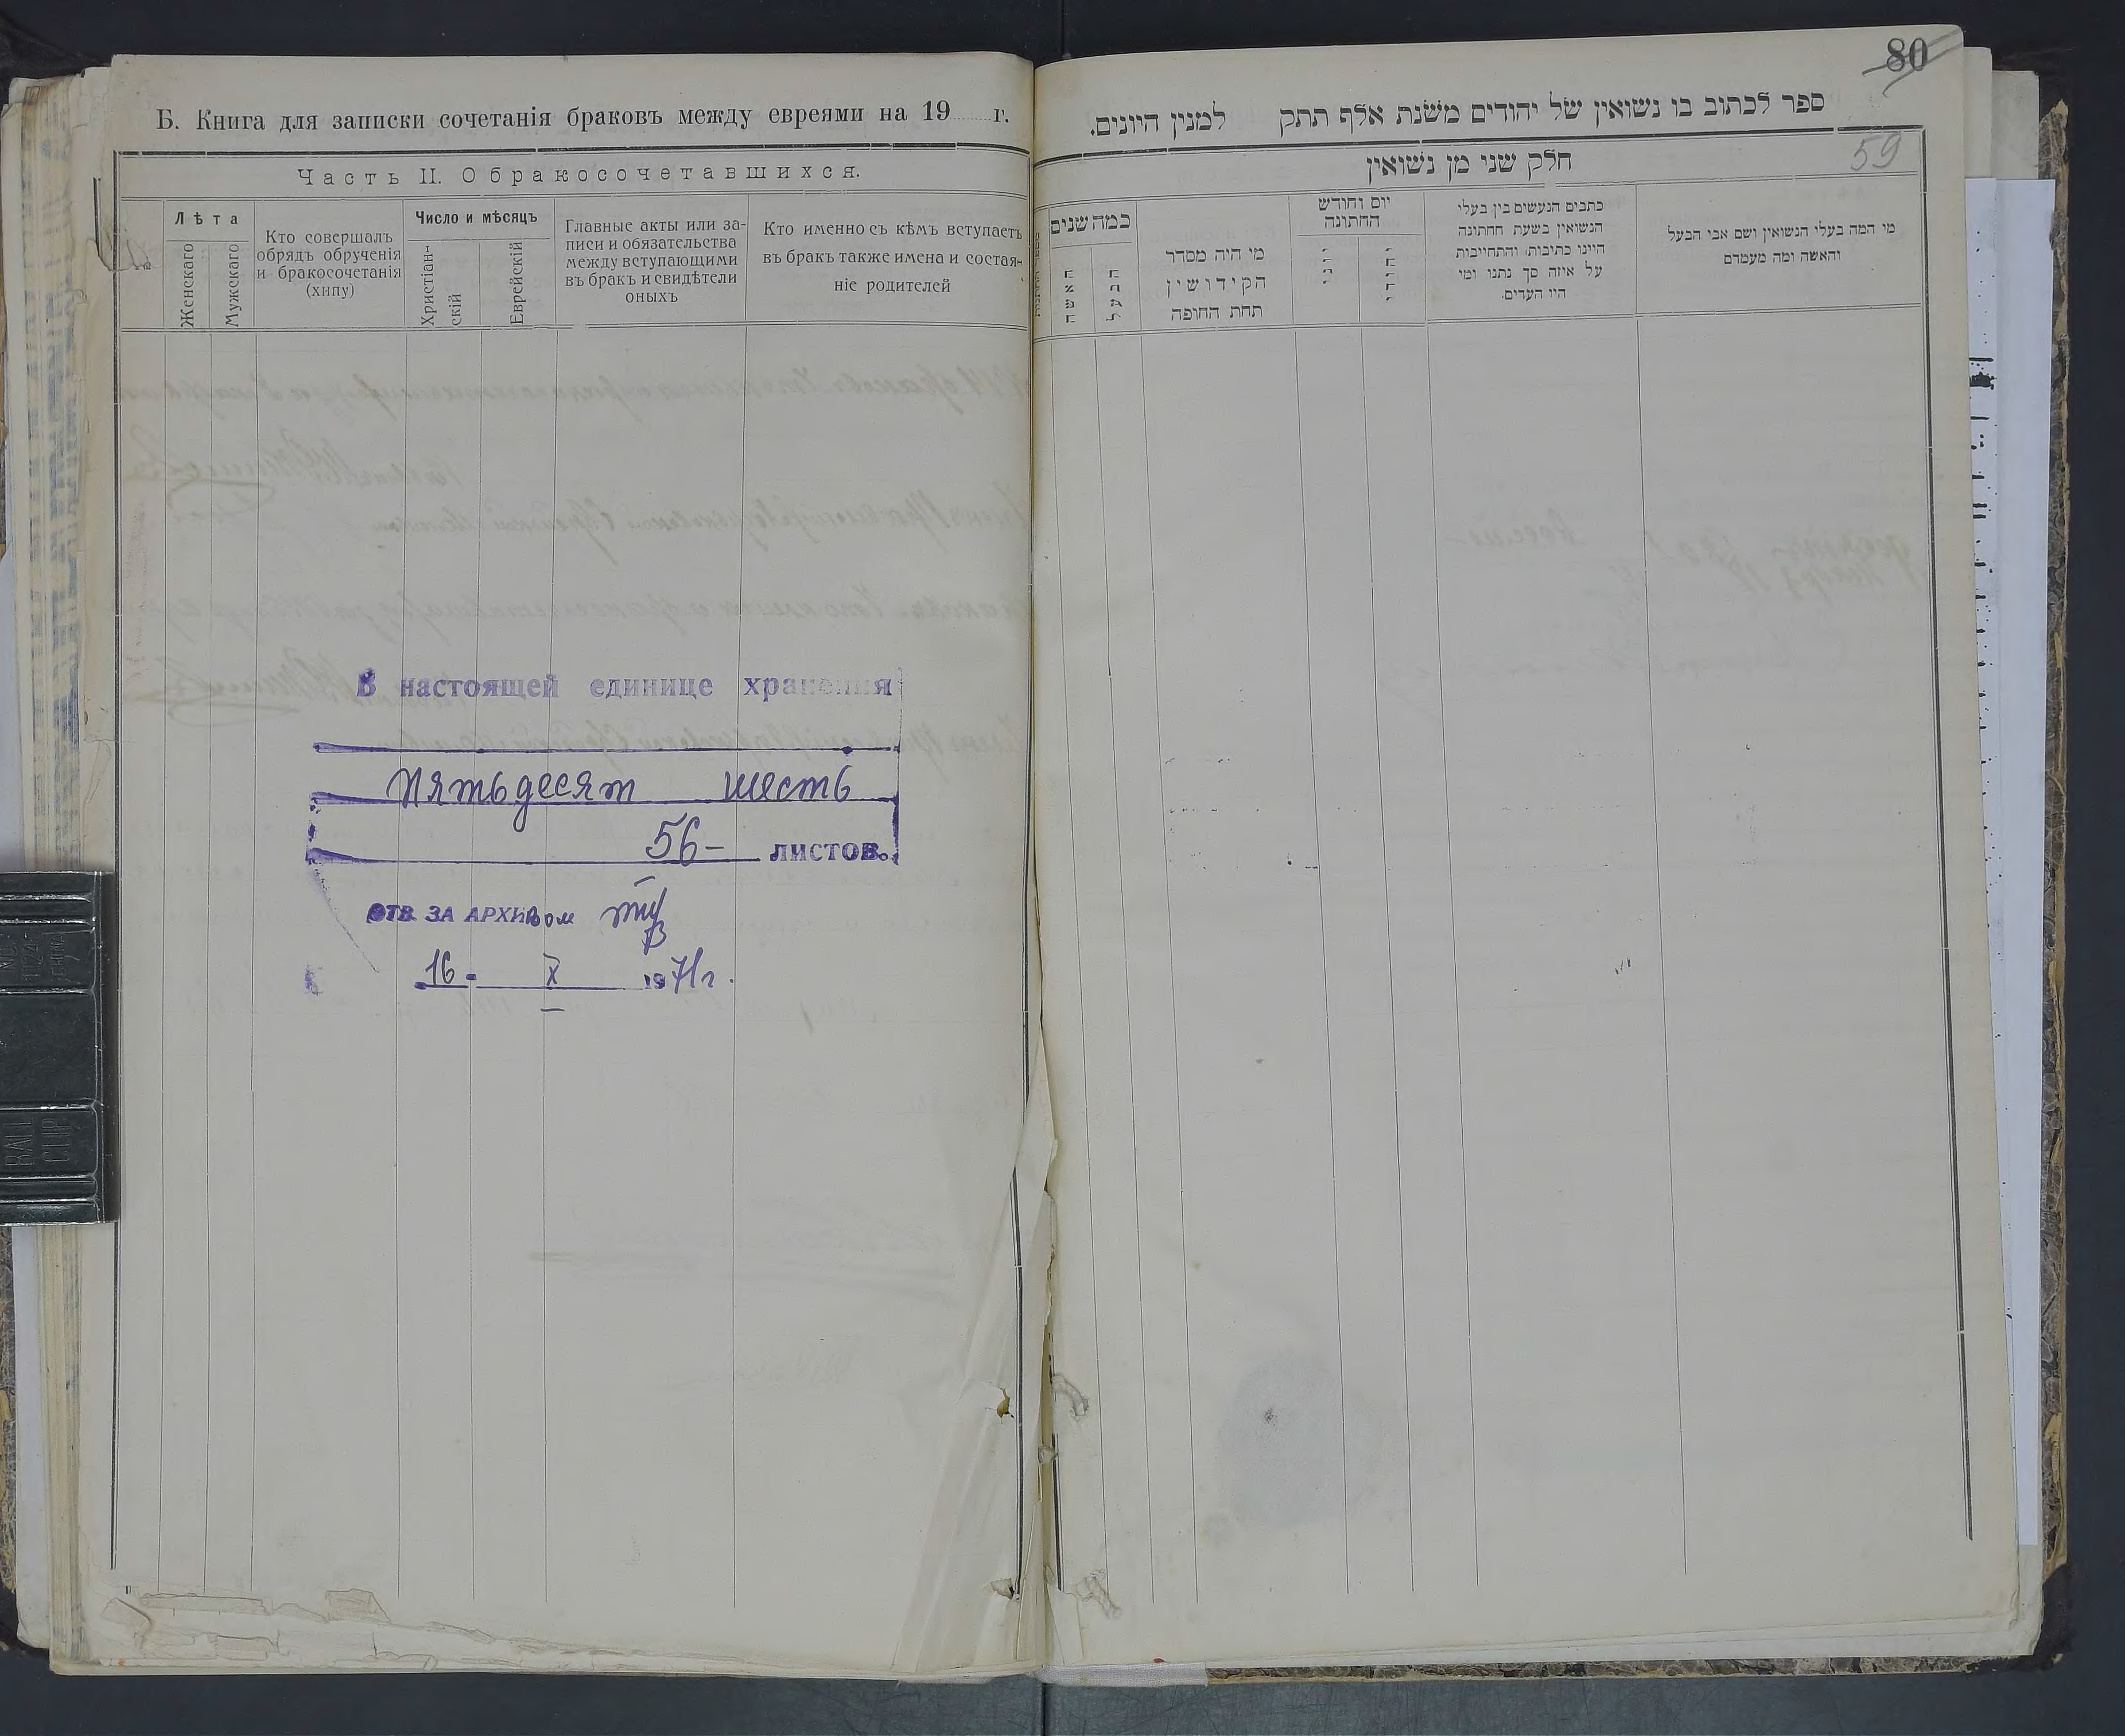 Б. Книга для записки сочетанія браковъ между евреями на 19 г.
Часть II. О бракосочетавшихся.
Лѣта
Женскаго
Мужскаго
Кто совершалъ
обрядъ обрученія
и бракосочетанія
(хипу)
Число и мѣсяцъ
Христіан-
скій
Еврейскій
Главные акты или за-
писи и обязательства
между вступающими
въ бракъ и свидѣтели
оныхъ
Кто именно съ кѣмъ вступаетъ
въ бракъ также имена и состоя-
ніе родителей
В настоящей единице хранения
пятьдесят шесть
56- листов.
ОТВ. ЗА АРХИвом
16 - X 1971г.
80
ספר לכתוב בו נשואין של יהודים משנת אלף תתק למנין היונים.
59
חלק שני מן נשואין
כמה שנים
האשה
הבעל
מי היה מסדר
הקידושין
תחת החופה
יום וחודש
החתונה
כתבים הנעשים בין בעלי
הנשואין בשעת חחתונה
היינו כתיבות והתחייבות
על איזה סך נתנו ומי
היו העדים.
מי המה בעלי הנשואין ושם אבי הבעל
והאשה ומה מעמדם